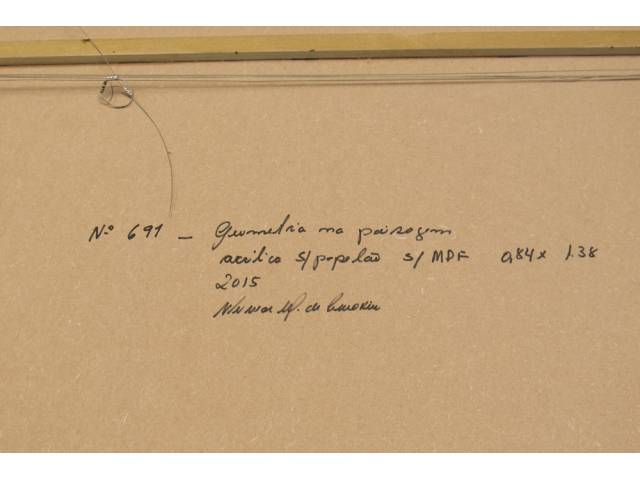 Nº 691 - Geometria na paisagem
acrílica s/papelão s/ MDF 0,84 x 1.38
2015
de Amorim